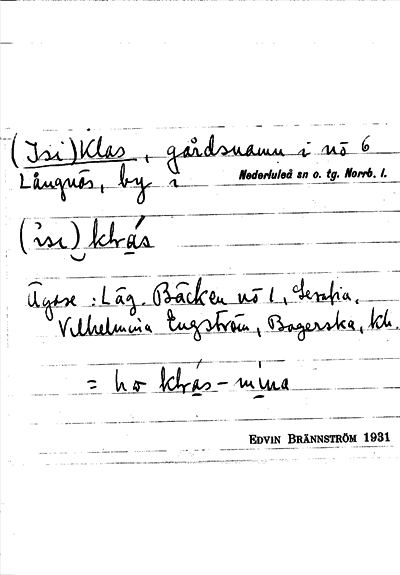 (Isi)Klas, gårdsnamn i nö 6
Långnäs, by i Nederluleå sn o. tg. Norrb. l.
(isi) klås
Ägare: Läg. Bäcken nö 1, Serafia,
Vilhelmina Engström, Bagerska, Kh.
= ho klås-mina
EDVIN BRÄNNSTRÖM 1931